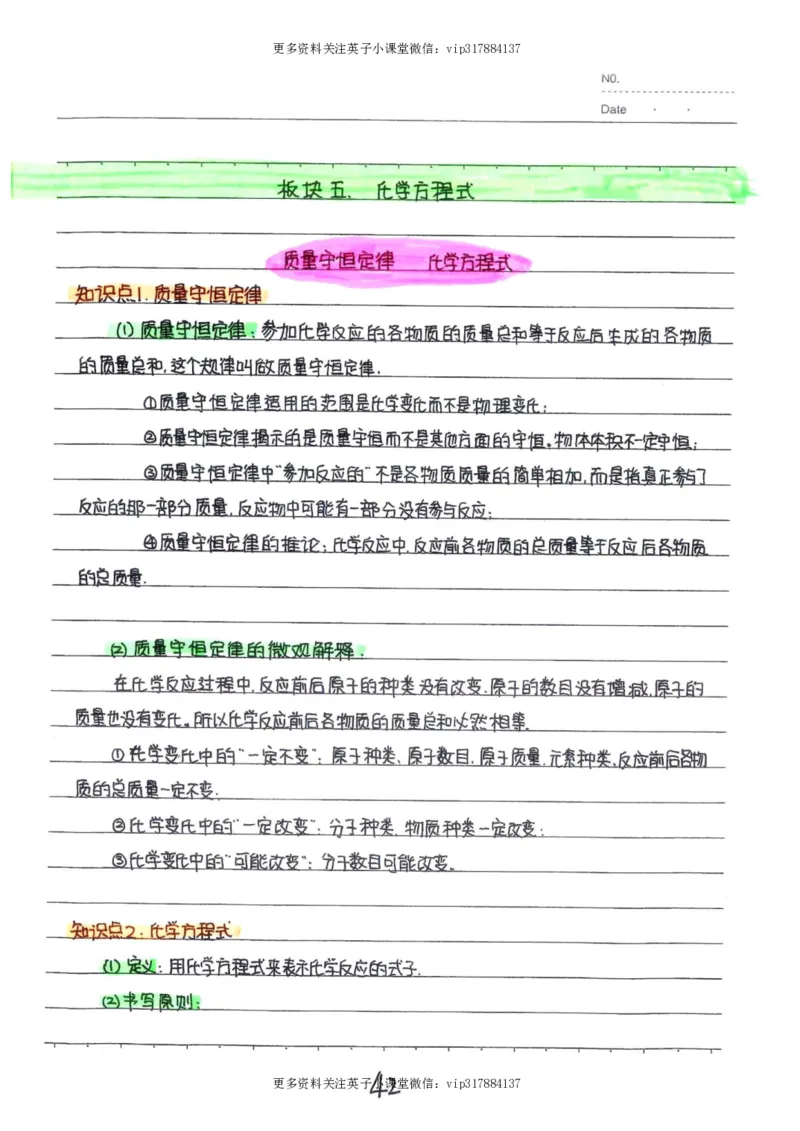 更多资料关注英子小课堂微信：vip317884137
NO.
Date
板块五. 化学方程式
质量守恒定律 化学方程式
知识点1.质量守恒定律
(1)质量守恒定律：参加化学反应的各物质的质量总和等于反应后生成的各物质
的质量总和,这个规律叫做质量守恒定律.
①质量守恒定律适用的范围是化学变化而不是物理变化;
②质量守恒定律揭示的是质量守恒而不是其他方面的守恒。物体体积不一定守恒;
③质量守恒定律中"参加反应的"不是各物质质量的简单相加,而是指真正参与了
反应的那一部分质量,反应物中可能有一部分没有参与反应;
④质量守恒定律的推论：化学反应中,反应前各物质的总质量等于反应后各物质
的总质量.
(2)质量守恒定律的微观解释：
在化学反应过程中,反应前后原子的种类没有改变.原子的数目没有增减,原子的
质量也没有变化。所以化学反应前后各物质的质量总和必然相等.
①化学变化中的"一定不变"：原子种类、原子数目.原子质量.元素种类、反应前后各物
质的总质量一定不变.
②化学变化中的"一定改变"：分子种类.物质种类一定改变;
③化学变化中的"可能改变"：分子数目可能改变。
知识点2：化学方程式
(1)定义：用化学方程式来表示化学反应的式子.
(2)书写原则：
更多资料关注英子小课堂微信：vip317884137
42